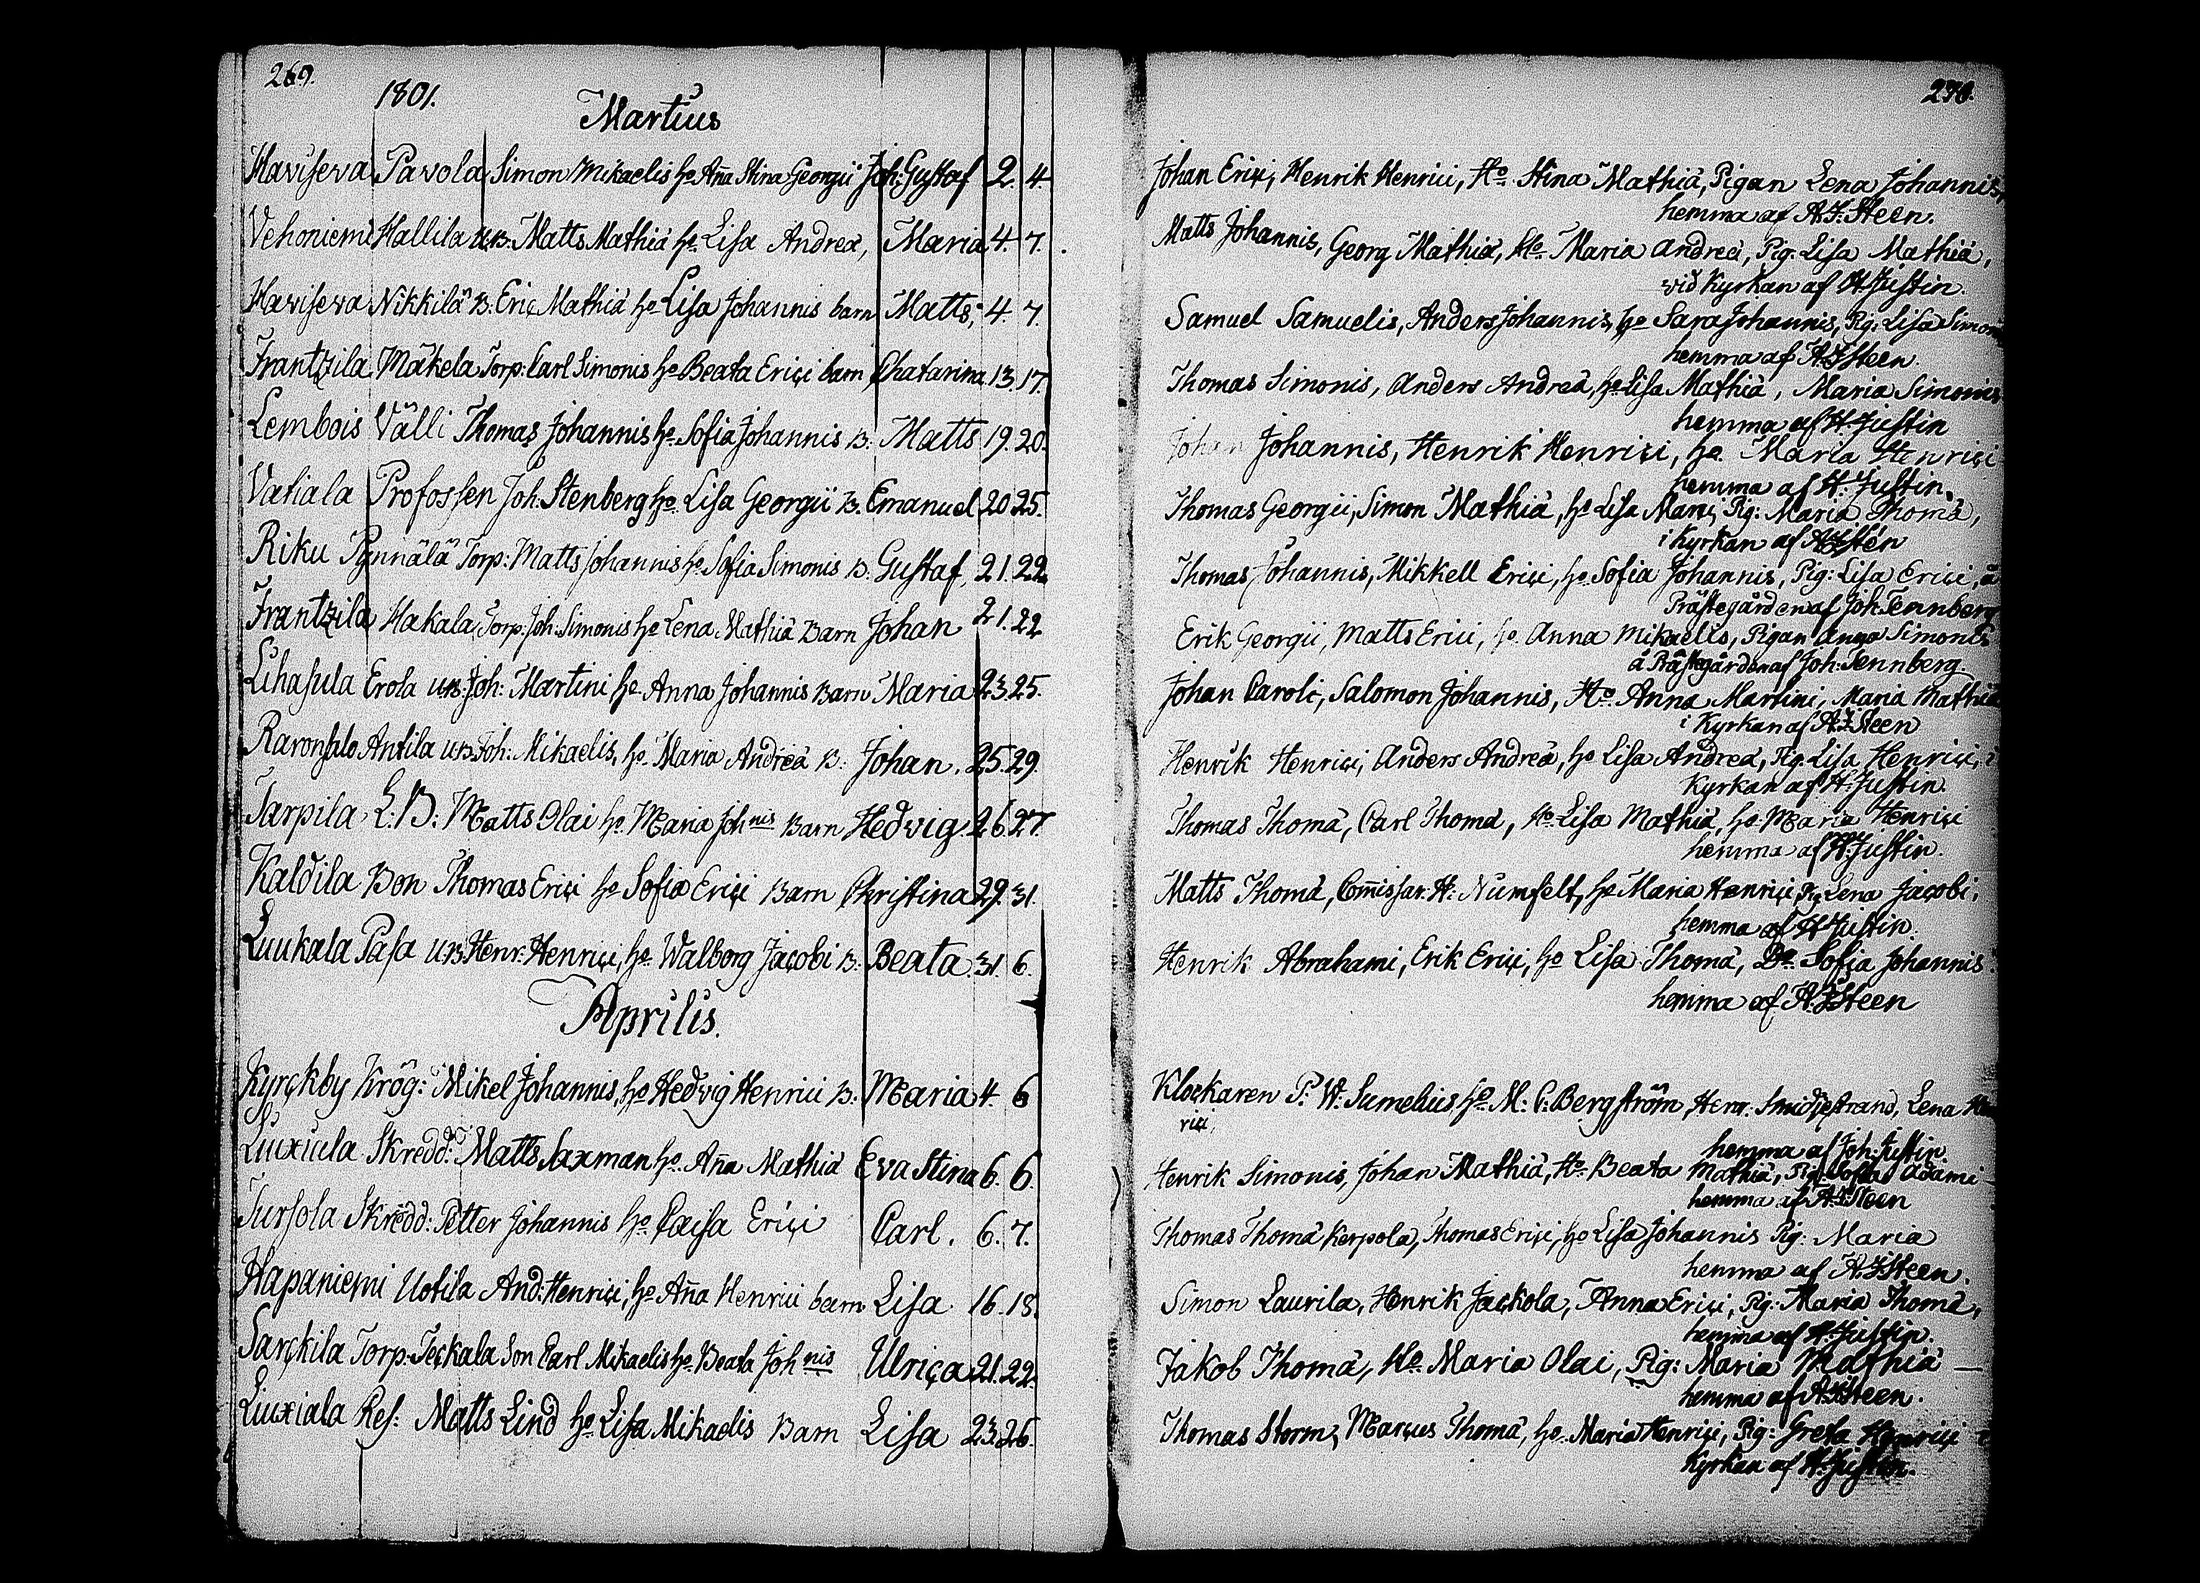 269.
1801.
Martius
Haviseva Pavola Simon Mikaelis ho Aña Stina Georgii Joh: Gustaf 2. 4.
Vehoniemi Hallila uB. Matts Mathiä ho Lisa Andreä, Maria 4. 7.
Haviseva Nikkilä B. Eric Mathiä ho Lisa Johannis barn Matts, 4. 7.
Frantzila Mäkela Torp: Carl Simonis ho Beata Erici barn Chatarina 13. 17.
Lembois Välli Thomas Johannis ho Sofia Johannis B: Matts 19. 20.
Vatiala Profossen Joh: Stenberg ho Lisa Georgii B. Emanuel 20. 25.
Riku Pynnälä Torp: Matts Johannis ho Sofia Simonis B: Gustaf 21. 22.
Frantzila Hakala Torp: Joh: Simonis ho Lena Mathiä Barn Johan 21. 22
Lihasula Erola uB: Joh: Martini ho Anna Johannis Barn Maria 23. 25.
Raronsalo Antila uB: Joh: Mikaelis, ho Maria Andreä B: Johan. 25. 29.
Tarpila L: B: Matts Olai ho Maria Johnis Barn Hedvig 26. 27.
Kaldila Bon Thomas Erici ho Sofia Erici Barn Christina 29. 31.
Luukala Pasa uB Henr: Henrici, ho Walborg Jacobi B: Beata 31 6.
Aprilis.
Kyrckby Krög: Mikel Johannis, ho Hedvig Henrici B: Maria 4. 6
Liuxiala Skredd: Matts Saxman ho Aña Mathiä Eva Stina 6. 6.
Tursola Skrédd: Petter Johannis ho Caisa Erici Carl. 6. 7.
Hapaniemi Uotila And: Henrici, ho Aña Henrici barn Lisa 16. 18.
Sarckila Torp: Teckala Son Carl Mikaelis ho Beata Johnis Ulrica 21. 22.
Liuxiala Res: Matts Lind ho Lisa Mikaelis Barn Lisa 23. 26.
270.
Johan Erici, Henrik Henrici, Ho Stina Mathiä, Pigan Lena Johannis,
hemma af A.J. Steen.
Matts Johannis, Georg Mathiä, Ho Maria Andreä, Pig. Lisa Mathiä,
vid Kyrkan af H. Justin.
Samuel Samuelis, Anders Johannis, ho Sara Johannis, Pig: Lisa Simonis
hemma af A.J Steen.
Thomas Simonis, Anders Andreä, ho Lisa Mathiä, Maria Simonis
hemma af H. Justin
Johan Johannis, Henrik Henrici, ho Maria Henrici
hemma af H. Justin.
Thomas Georgii, Simon Mathiä, ho Lisa Marci, Pig: Maria Thomä,
i Kyrkan af AJ Stén
Thomas Johannis, Mikkell Erici, ho Sofia Johannis, Pig: Lisa Erici, å
Prästegården af Joh: Tennberg
Erik Georgii, Matts Erici, ho Anna Mikaelis, Pigan Anna Simonis
å Prästegården af Joh: Tennberg.
Johan Caroli, Salomon Johannis, Ho Anna Martini, Maria Mathiä
i Kyrkan af A.J. Steen
Henrik Henrici, Anders Andreä, ho Lisa Andreä, Pig: Lisa Henrici, i
Kyrkan af H. Justin.
Thomas Thomä, Carl Thomä, Ho Lisa Mathiä, ho Maria Henrici
hemma af H. Justin.
Matts Thomä, Comissar. H: Numfelt, ho Maria Henrici Pig Lena Jacobi,
hemma af H Justin.
Henrik Abrahami, Erik Erici, ho Lisa Thomä, Do Sofia Johannis
hemma af A.J Steen
Klockaren P: W: Sumelius, ho M: C: Bergström, Herr. Lena Hen
rici,
hemma af Joh: Justin.
Henrik Simonis, Johan Mathiä, Ho Beata Mathiä, Pig: Sofia Adami
hemma af A. Steen
Thomas Thomä Kerpola, Thomas Erici, ho Lisa Johannis Pig: Maria
hemma af A.J Steen.
Simon Laurila, Henrik Jackola, Anna Erici, Pig: Maria Thomä,
hemma af H. Justin.
Jakob Thomä, Ho Maria Olai, Pig: Maria Mathiä
hemma af A.J Steen.
Thomas Storm, Marcus Thomä, ho Maria Henrici, Pig: Greta Henrici i
Kyrkan af H. Justin.